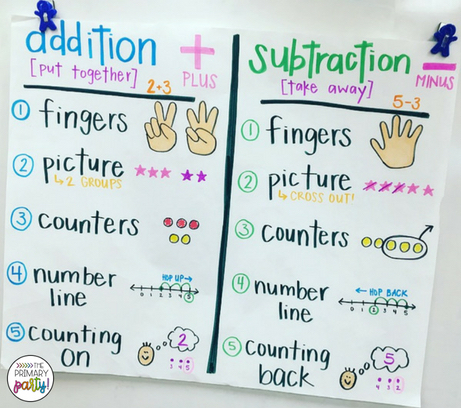 addition + PLUS
[put together] 2+3
① fingers
② picture
↳ 2 GROUPS
③ counters
④ number line
HOP UP→
0 1 2 3 4 5
⑤ counting on
2
3 4 5
subtraction − MINUS
[take away] 5-3
① fingers
② picture
↳ CROSS OUT!
③ counters
④ number line
← HOP BACK
0 1 2 3 4 5
⑤ counting back
5
4 3 2
THE PRIMARY party!